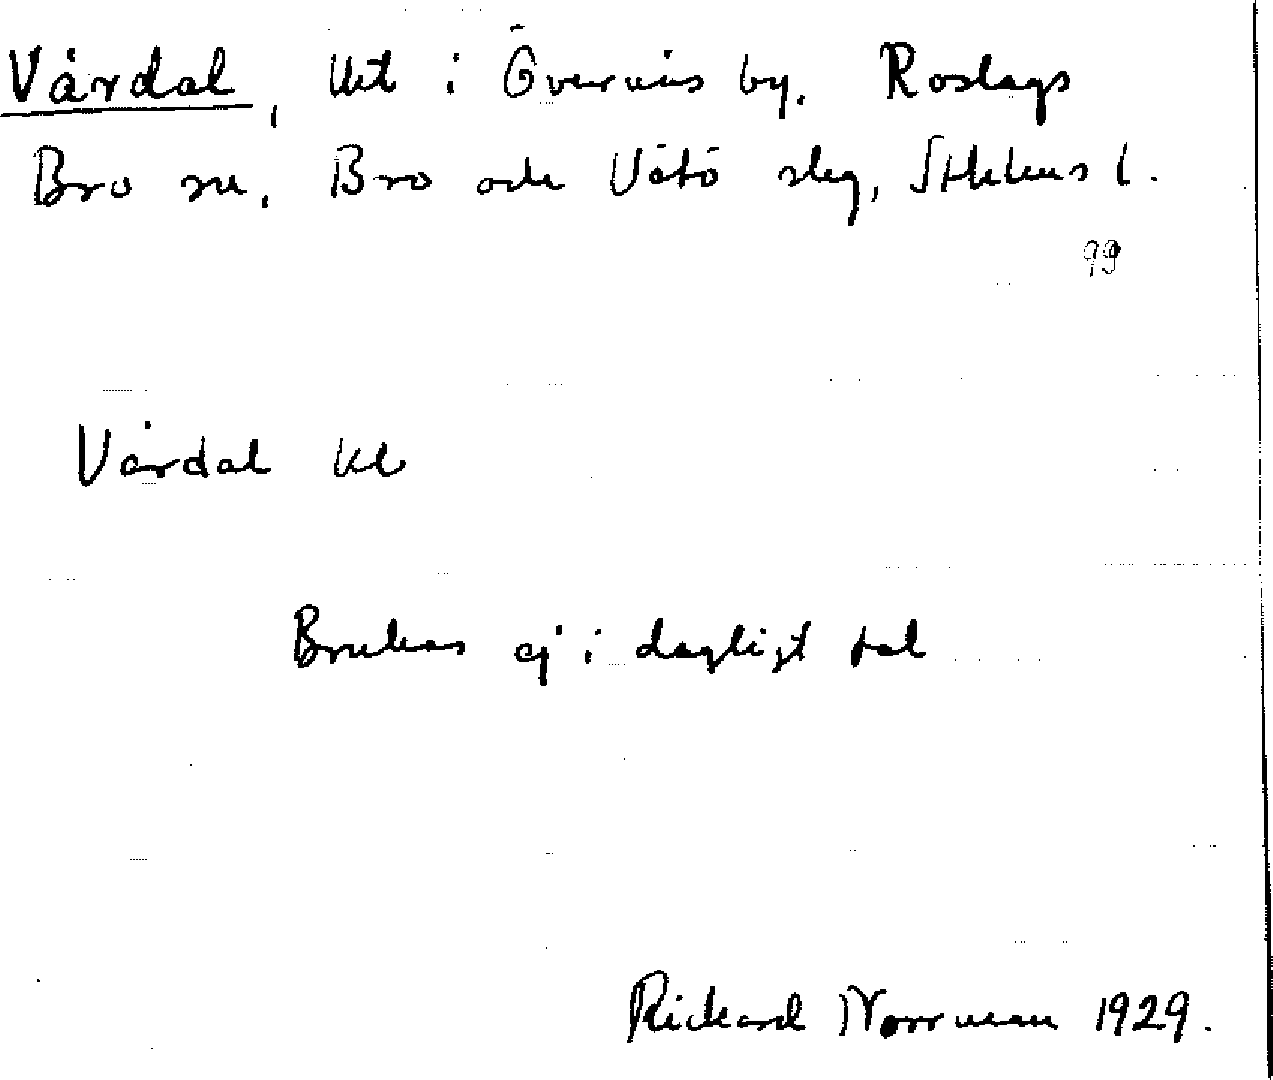 Vårdal, lht i Övernäs by. Roslags
Bro sn, Bro och Vätö slg, Sthlms l.
99
Vårdal
Brukas ej i dagligt tal
Rickard Norrman 1929.